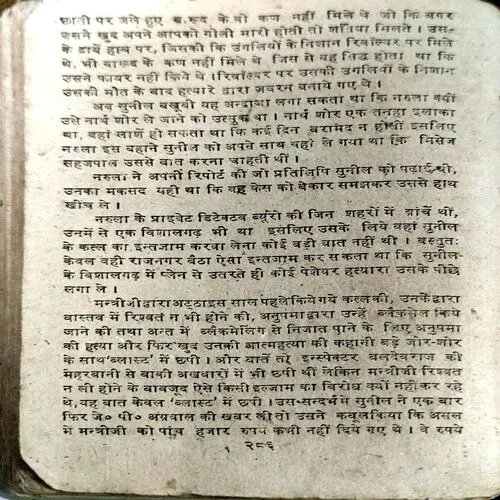 छाती पर जले हुए बारूद के वो कण नहीं मिले थे जो कि अगर
उसने खुद अपने आपको गोली मारी होती तो शर्तिया मिलते । उस-
के दायें हाथ पर, जिसकी कि उंगलियों के निशान रिवॉल्वर पर मिले
थे, भी बारूद के कण नहीं मिले थे, जिस से यह सिद्ध होता था कि
उसने फायर नहीं किये थे । रिवॉल्वर पर उसकी उंगलियों के निशान
उसकी मौत के बाद हत्यारे द्वारा जबरन बनाये गए थे ।
अब सुनील बखूबी यह अन्दाजा लगा सकता था कि नरुला क्यों
उसे नार्थ शोर ले जाने को उत्सुक था । नार्थ शोर एक तनहा इलाका
था, वहां लाशें हो सकता था कि कई दिन बरामद न होतीं इसलिए
नरुला इस बहाने सुनील को अपने साथ वहां ले गया था कि मिसेज
सहजपाल उससे बात करना चाहती थीं ।
नरुला ने अपनी रिपोर्ट की जो प्रतिलिपि सुनील को पढ़ाई थी,
उनका मकसद यही था कि वह केस को बेकार समझकर उससे हाथ
खींच ले ।
नरुला के प्राइवेट डिटेक्टिव ब्यूरो की जिन शहरों में ब्रांचें थीं,
उनमें से एक विशालगढ़ भी था इसलिए उसके लिये वहां सुनील
के कत्ल का इन्तजाम करवा लेना कोई बड़ी बात नहीं थी । वस्तुतः
केवल वही राजनगर बैठा ऐसा इन्तजाम कर सकता था कि सुनील-
के विशालगढ़ में प्लेन से उतरते ही कोई पेशेवर हत्यारा उसके पीछे
लगा ले ।
मन्त्रीजी द्वारा अट्ठाइस साल पहले किये गये कत्ल की, उनके द्वारा
वास्तव में रिश्वत न भी होने की, अनुपमा द्वारा उन्हें ब्लैकमेल किये
जाने की तथा अन्त में ब्लैकमेलिंग से निजात पाने के लिए अनुपमा
की हत्या और फिर खुद उनकी आत्महत्या की कहानी बड़े जोर-शोर
के साथ ‘ब्लास्ट’ में छपी । और बातें तो इन्स्पेक्टर बलदेवराज की
मेहरबानी से बाकी अखबारों में भी छपी थीं लेकिन मन्त्रीजी रिश्वत
न ली होने के बावजूद ऐसे किसी इल्जाम का विरोध क्यों नहीं कर रहे
थे, यह बात केवल ‘ब्लास्ट’ में छपी । उस-सन्दर्भ में सुनील ने एक बार
फिर जे० पी० अग्रवाल की खबर ली तो उसने कबूल किया कि असल
में मन्त्रीजी को पांच हजार रुपये कभी नहीं दिये गए थे । वे रुपये
२८६